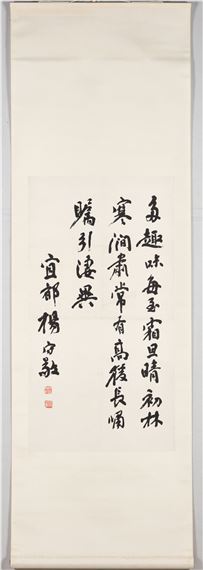 多趣味每至霜旦晴初林
寒澗肅常有高猨長嘯
矚引淒異
宜都楊守敬